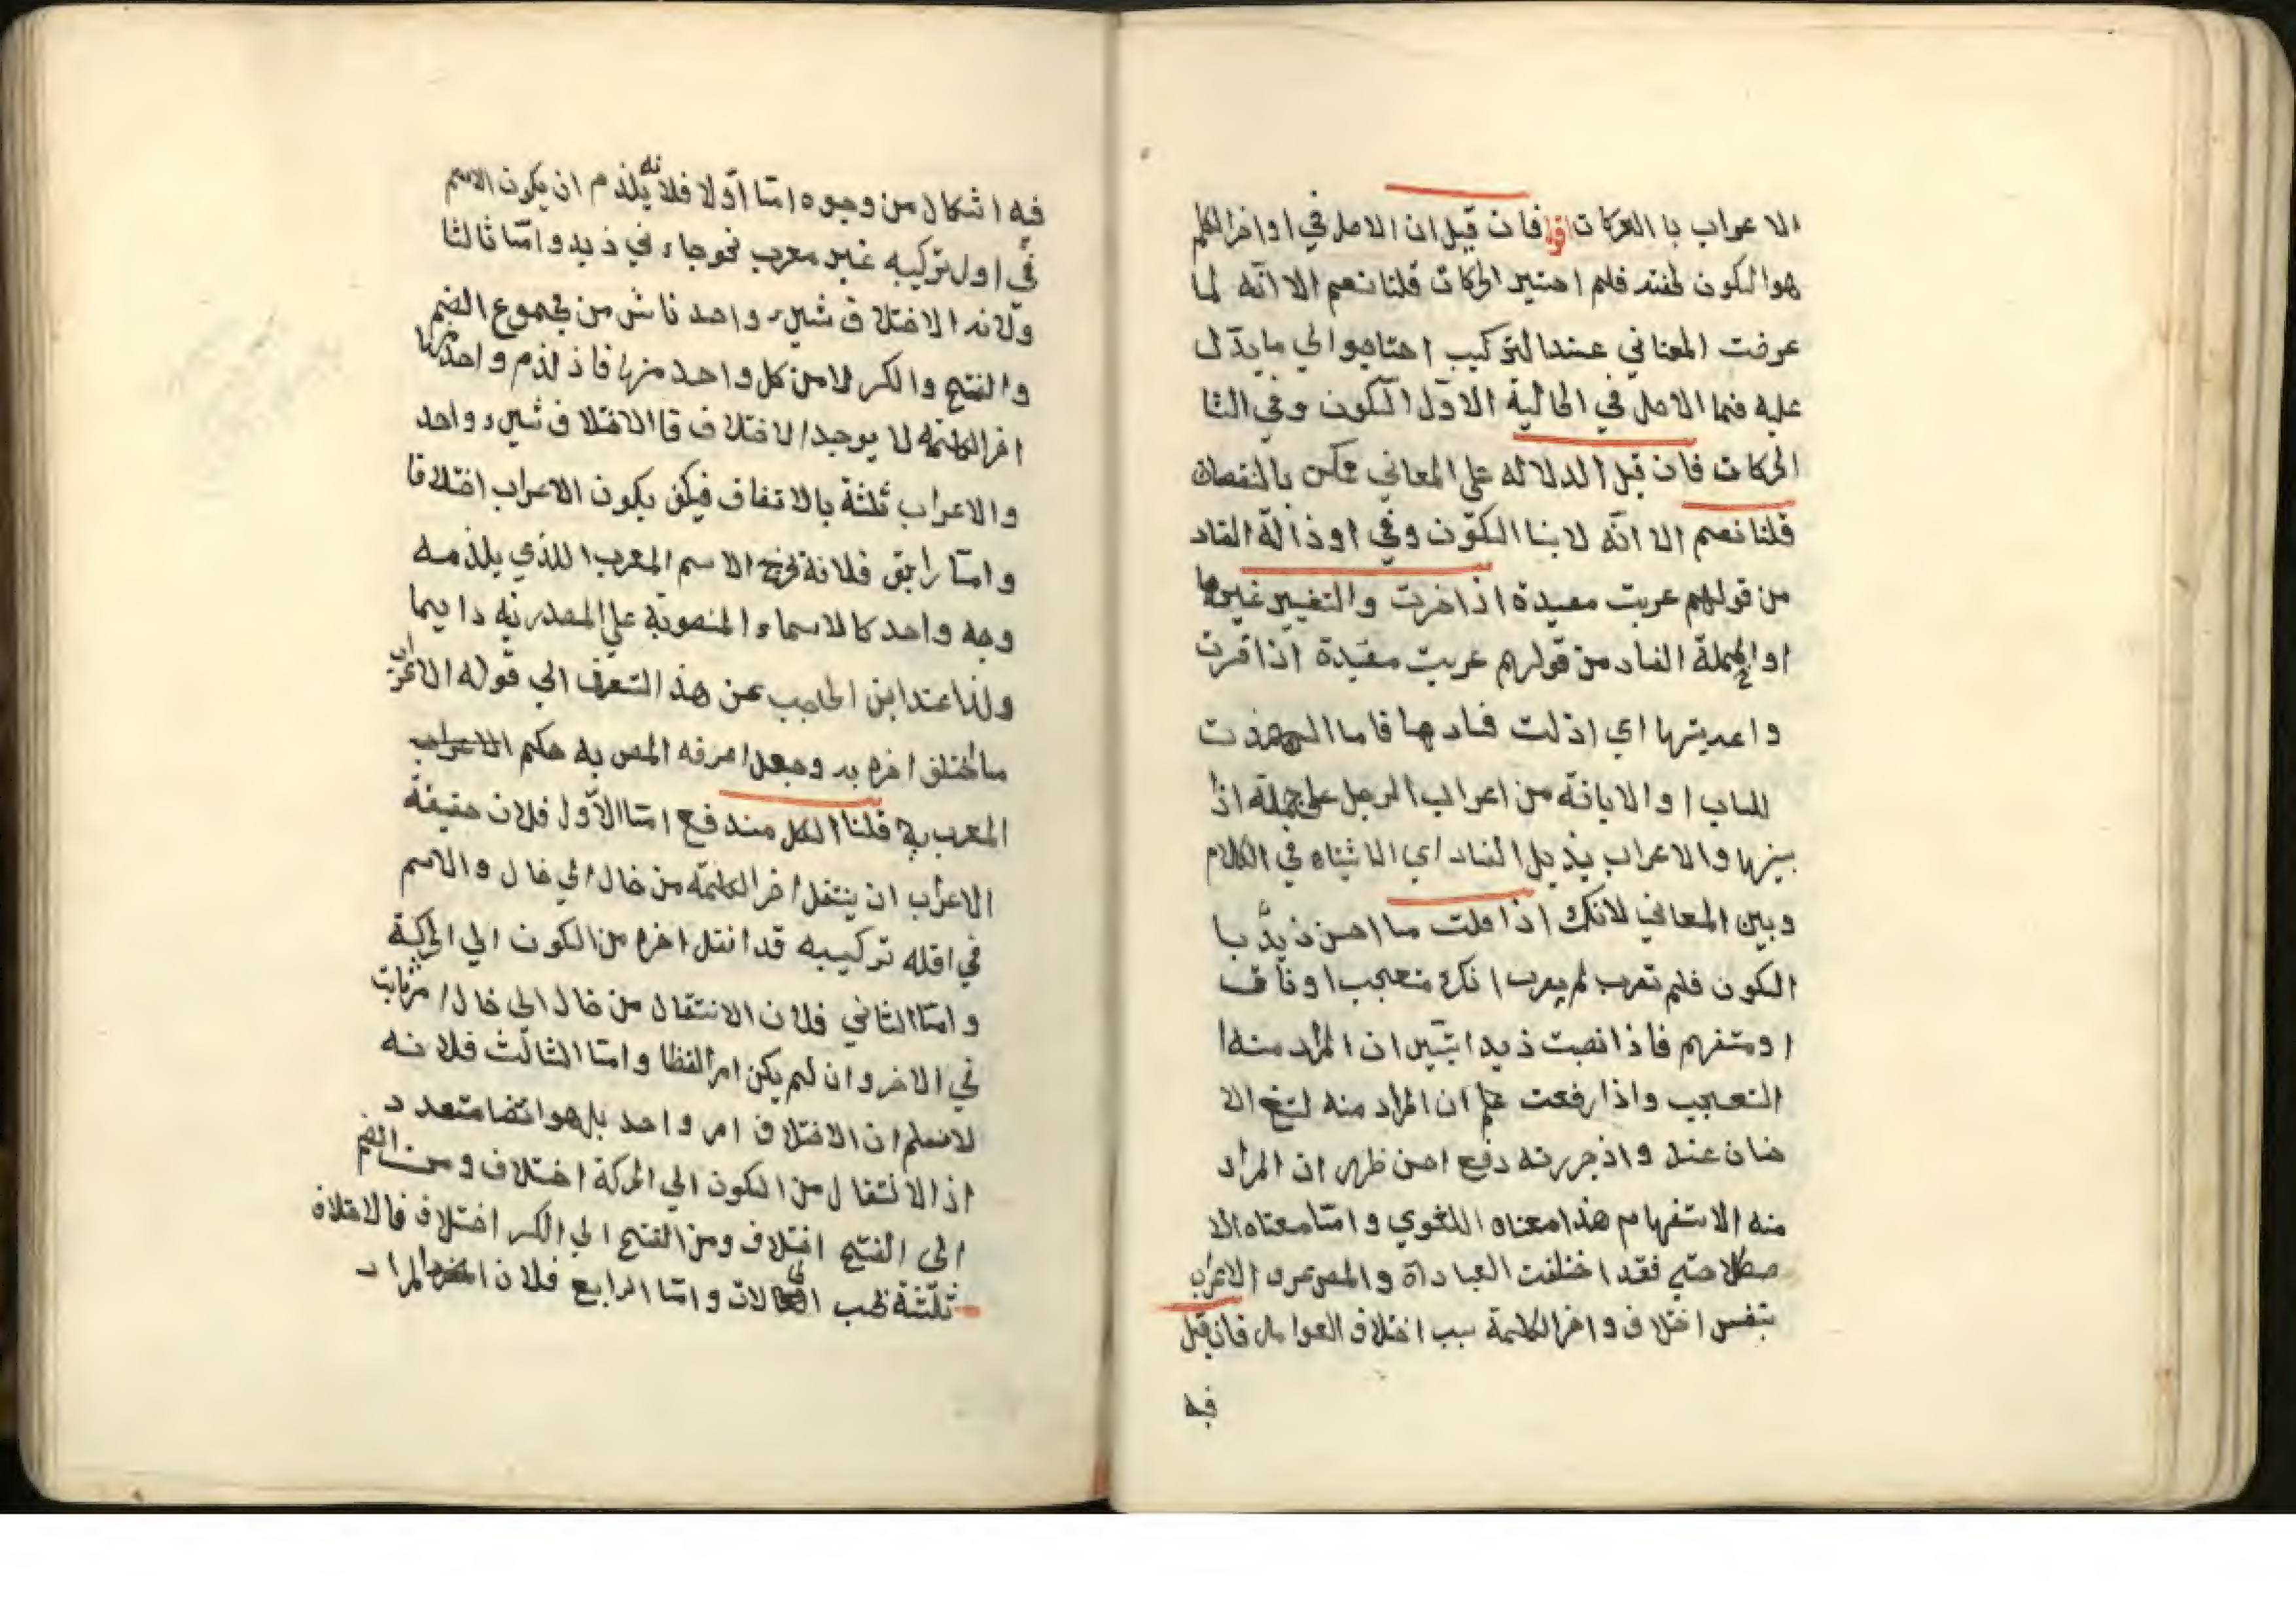 الاعراب با العركات فان قيل ان الاصل في اواخر الكلم
هو السكون لخفته فلم احتير الحركات قلنا نعم الا انّه لما
عرضت المعاني عند التركيب احتاجوا الي ما يدّل
عليه فما الاصل في الحالية الاوّل السّكون وفي الثا
الحركات فان قيل الدلاله علي المعاني ممكن بالنقصان
قلنا نعم الا انّه لا بنا السكون وفي او ذالة الفاد
من قولهم عربت معيدة اذا خربت والتغيير غيرها
او الجملة الفاد من قولهم عربت معيدة اذا قرت
واعديتها اي اذلت فسادها فاما
للباب او الابانة من اعراب الرجل علي جملة اذا
بينها والاعراب يذيل الفساد اي الاشتباه في الكلام
وبين المعاني لانك اذا قلت ما احسن ذيدّ با
السكون فلم تعرب لم يعرب انك متعجب او ناف
او مستفهم فاذا نصبت ذيدا تبّين ان المراد منه ا
التعجب واذا رفعت علم ان المراد منه الا
حسان عند واذ جررته دفع احسن ظهر ان المراد
منه الاستفهام هذا معناه اللغوي وامّا معناه الا
صطلاحي فقد اختلفت العباداة والمص عرف الاعراب
بنفس اختلاف واخر الكلمة سبب اختلاف العوامل فان قيل
فيه
فيه اشكال من وجوه امّا اوّلا فلانه يلذم ان يكون الاسم
في اول تركيبه غير معرب نحو جاء ني ذيد وامّا ثالثا
ولانه الاختلاف شيء واحد ناش من مجموع الضم
والفتح والكسر لا من كل واحد منها فاذ لذم واحد منها
اخر الكلمة لا يوجد الاختلاف فا الاختلاف شيء واحد
والاعراب ثلثة بالاتفاق فيكف يكون الاعراب اختلافا
وامّا رابعا فلانه تخرج الاسم المعرب اللذي يلذمه
وجه واحد كالاسماء المنصوبة علي المصدرية دايما
ولذا عند ابن الحاجب عن هذ التعرف الي قوله الاعراب
ما اختلف اخره به وجعل معرفه المص به حكم الاعراب
المعرب به قلنا الكل مندفع امّا الاوّل فلان حقيقة
الاعراب ان ينتقل اخر الكلمة من حال الي حال والاسم
في اقله تركيبه قد انتل اخره من السكون الي الحركة
وامّا الثاني فلان الانتقال من حال الي حال امر ثابت
في الاخر وان لم يكن امر لفظا وامّا الثالث فلانه
لا نسلم ان الاختلاف امر واحد بل هو ايضا متعدد
اذ الانتقال من السكون الي الحركة اختلاف ومن الضم
الي الفتح اختلاف ومن الفتح الي الكسر اختلاف فالاختلاف
ثلثة بحسب الحالات وامّا الرابع فلان المراد